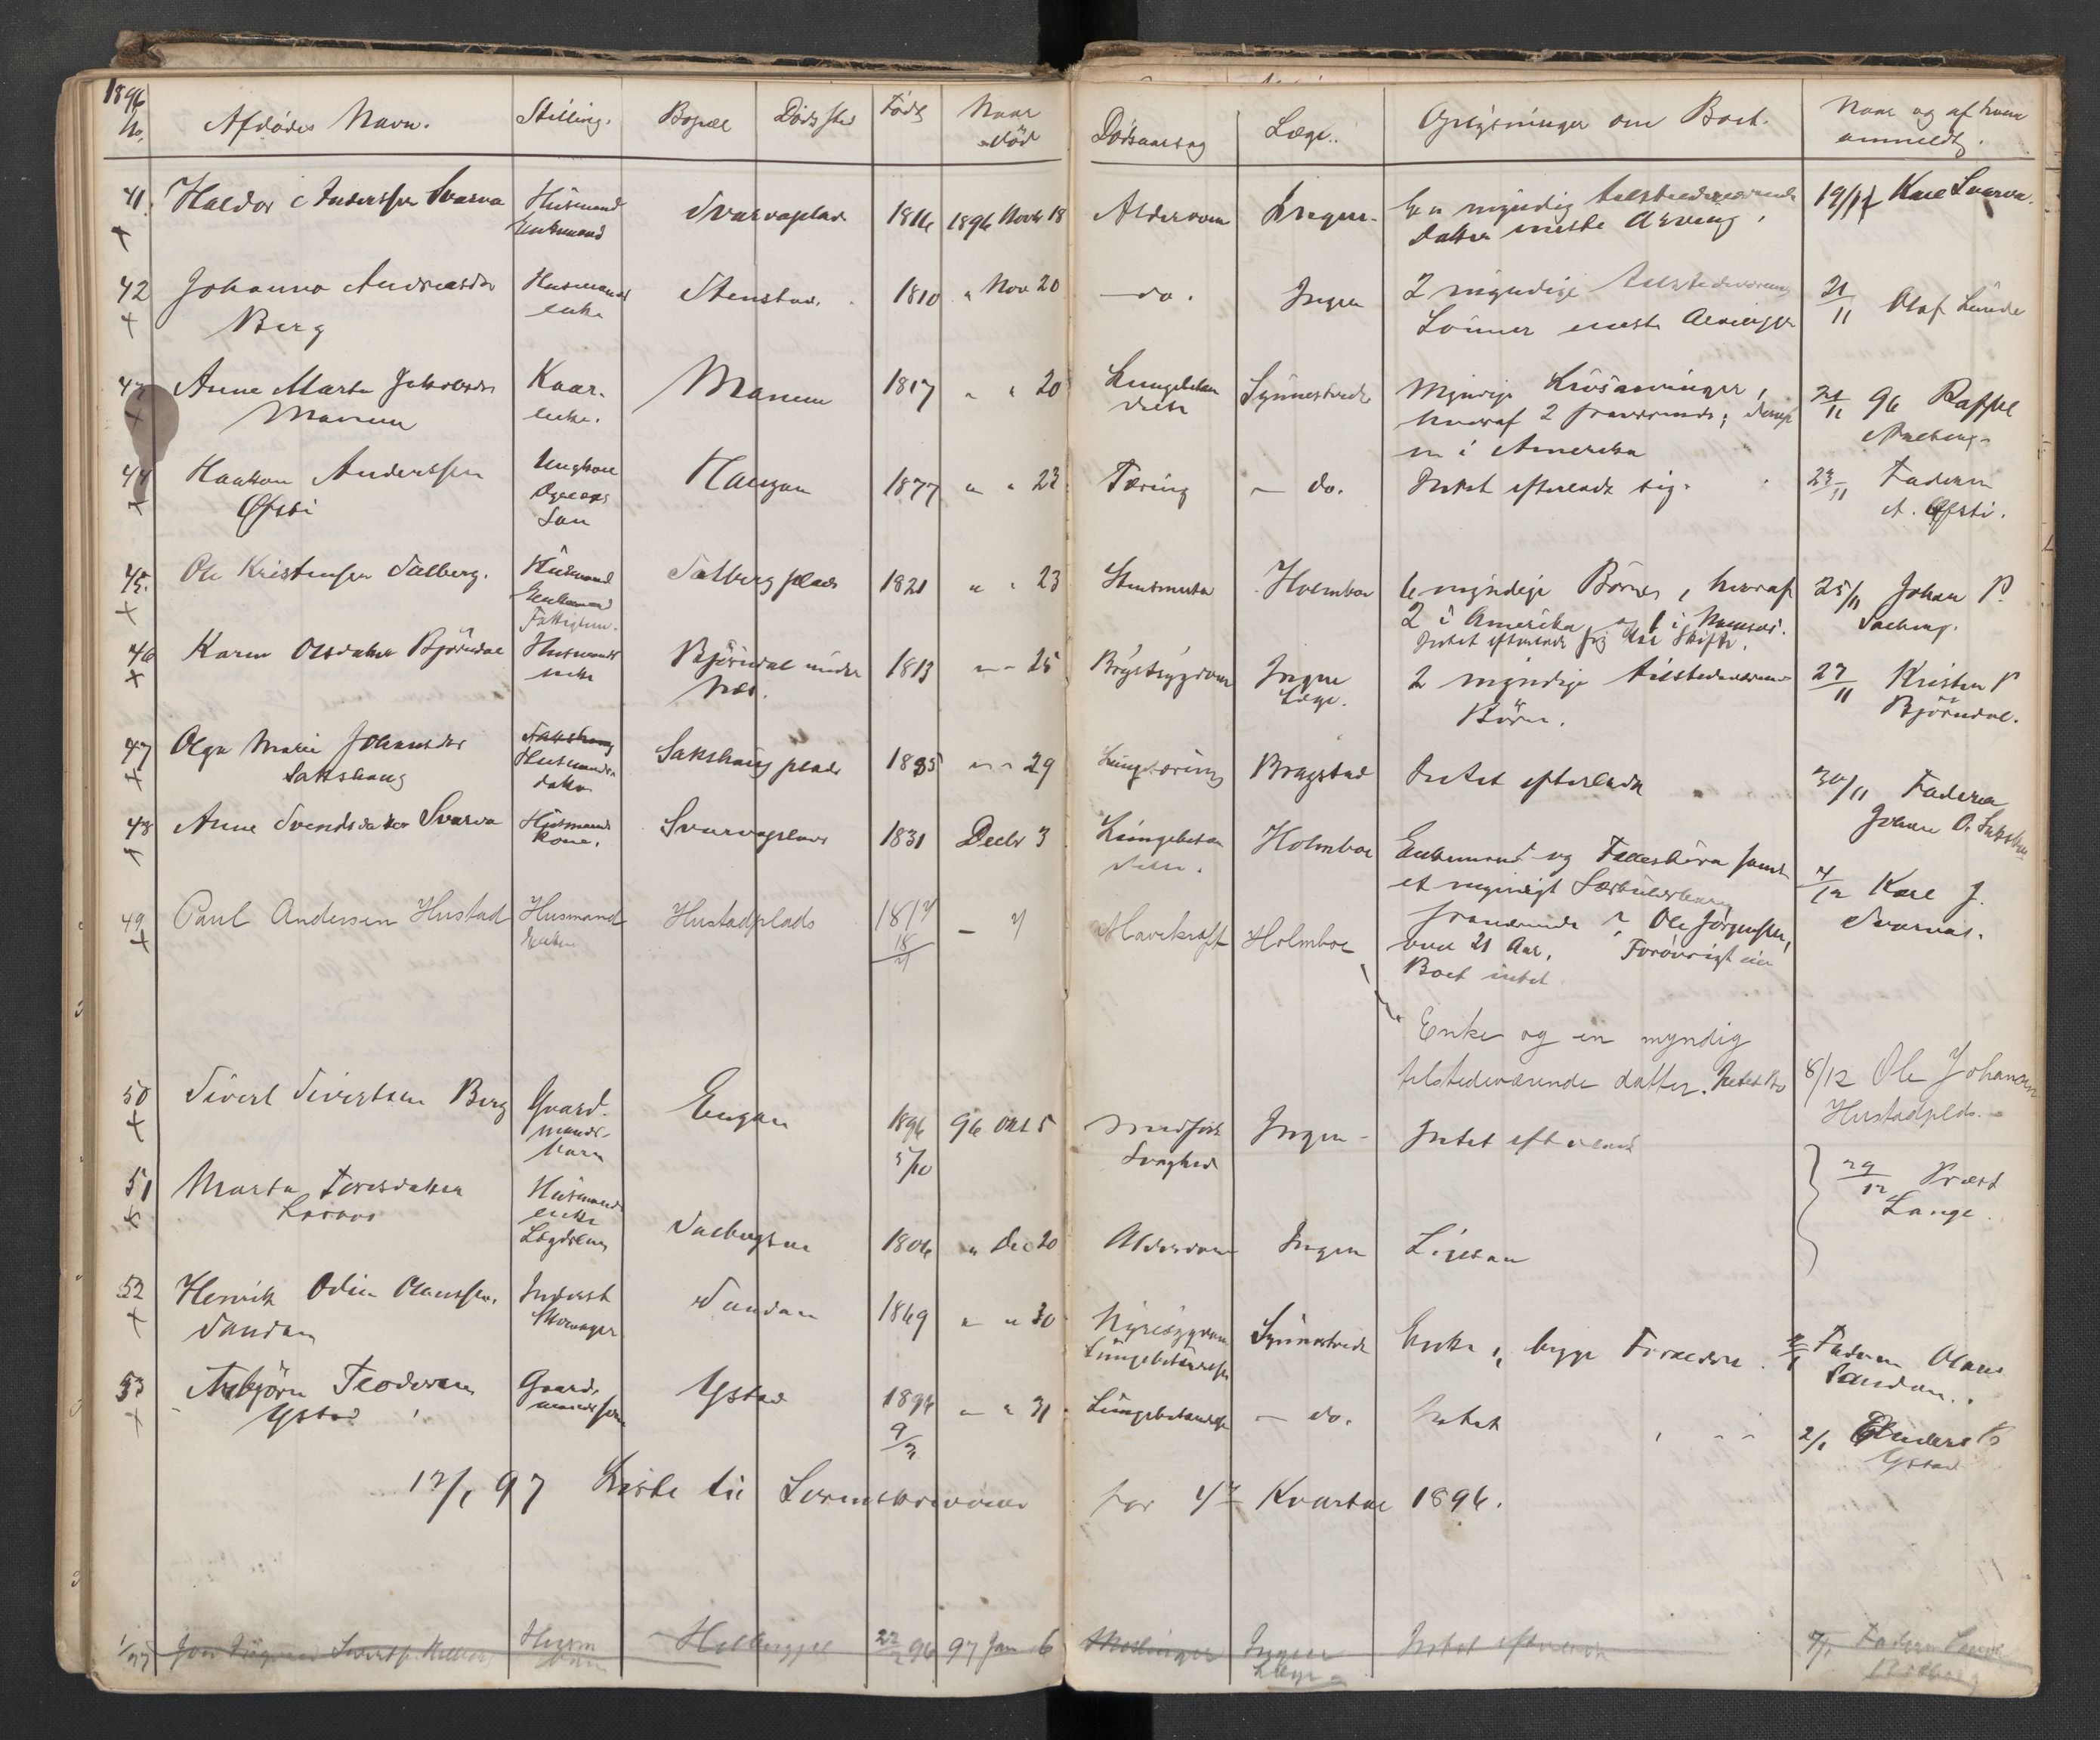 1896
No.
Afdødes Navn.
Stilling.
Bopæl
Dødssted
Født
Naar død
Dødsaarsag
Læge.
Oplysninger om Boet.
Naar og af hvem anmeldt.
41. Haldor Anderssen Svarva
Husmand
Enkemand
Svarvaplads
1816
1896 Novbr 18
Alderdom
Ingen
En myndig tilstedeværende
Datter eneste Arving.
19/11 Karl Svarva.
42 Johanna Andreasdr
Berg
Husmands
enke
Stenstad.
1810
" Nov 20
do.
Ingen
2 myndige tilstedeværende
Sønner eneste Arvinger
21/11 Olaf Lunde
43 Anne Marta Jakobsdr
Manum
Kaar-
enke.
Manum
1817
" " 20
Lungebetæn
delse
Synnestvedt
Myndige Livsarvinger,
hvoraf 2 fraværende,
en i Amerika
21/11 96
44 Haakon Anderssen
Øfsti
Ungkarl
Søn
Haugan
1877
" " 23
Tæring
do.
Intet efterladt sig.
23/11 Faderen
A. Øfsti.
45. Ole Kristensen Salberg.
Husmand
Enkemand
Fattiglem.
Salberg plads
1821
" " 23
Holmboe
6 myndige Børn, hvoraf
2 i Amerika og 1 i Namsos.
Intet efterladt sig
25/11 Johan P.
Salberg.
46 Karen Olsdatter Bjørndal
Husmands
enke
Bjørndal under
Næs.
1813
" " 25
Brystsygdom
Ingen
Læge.
2 myndige tilstedeværende
Børn.
27/11 Kristen P
Bjørndal.
47 Olga Marie Johansdr
Sakshaug
Husmands-
datter
Sakshaug plads
1885
" " 29
Lungetæring
Bragstad
Intet efterladt
30/11 Faderen
Johan O.
48 Anne Svendsdatter Svarva
Husmands
Kone.
Svarvaplads
1831
Decbr 3
Lungebetæn
delse.
Holmboe
Enkemand og Fællesbørn samt
et myndigt Særkuldsbarn
fraværende: Ole Jørgenssen,
over 21 Aar. Forøvrigt
Boet intet
4/12 Karl J.
Svarva.
49 Paul Andersen Hustad
Husmand
Hustadplads
1817
18/4
Marekraft
Holmboe
Enke og en myndig
tilstedeværende datter. Intet Bo
8/12 Ole Johansen
Hustadplds.
50 Sivert Sivertsen Berg
Gaard-
mands-
barn
Engan
1896
5/10
96 Okt 5
Medfødt
Svaghed
Ingen
Intet efterladt
51 Marta Toresdatter
Husmands
enke
Lægdslem
1806
" Dec 20
Alderdom
Ingen
Ligesaa
29/12 Præst
Lange.
52 Henrik Odin Olaussen
Sandan
Inderst
Skomager
Sandan
1869
" " 30
Nyresygdom
Lungebetændelse
Synnestvedt
Enke, begge Forældre.
Faderen Olaus
Sandan.
53 Asbjørn Teodorsen
Ystad
Gaard-
mandssøn
Ystad
1894
9/3
" " 31
Lungebetændelse
do.
Intet
2/1 Anders
Ystad
12/1 97 Liste til Sorenskriveren for 4de Kvartal 1896.
1/97
Husm
barn
96
97 Jan 6
Meslinger
Ingen
Læge
Intet efterladt
7/1 Faderen